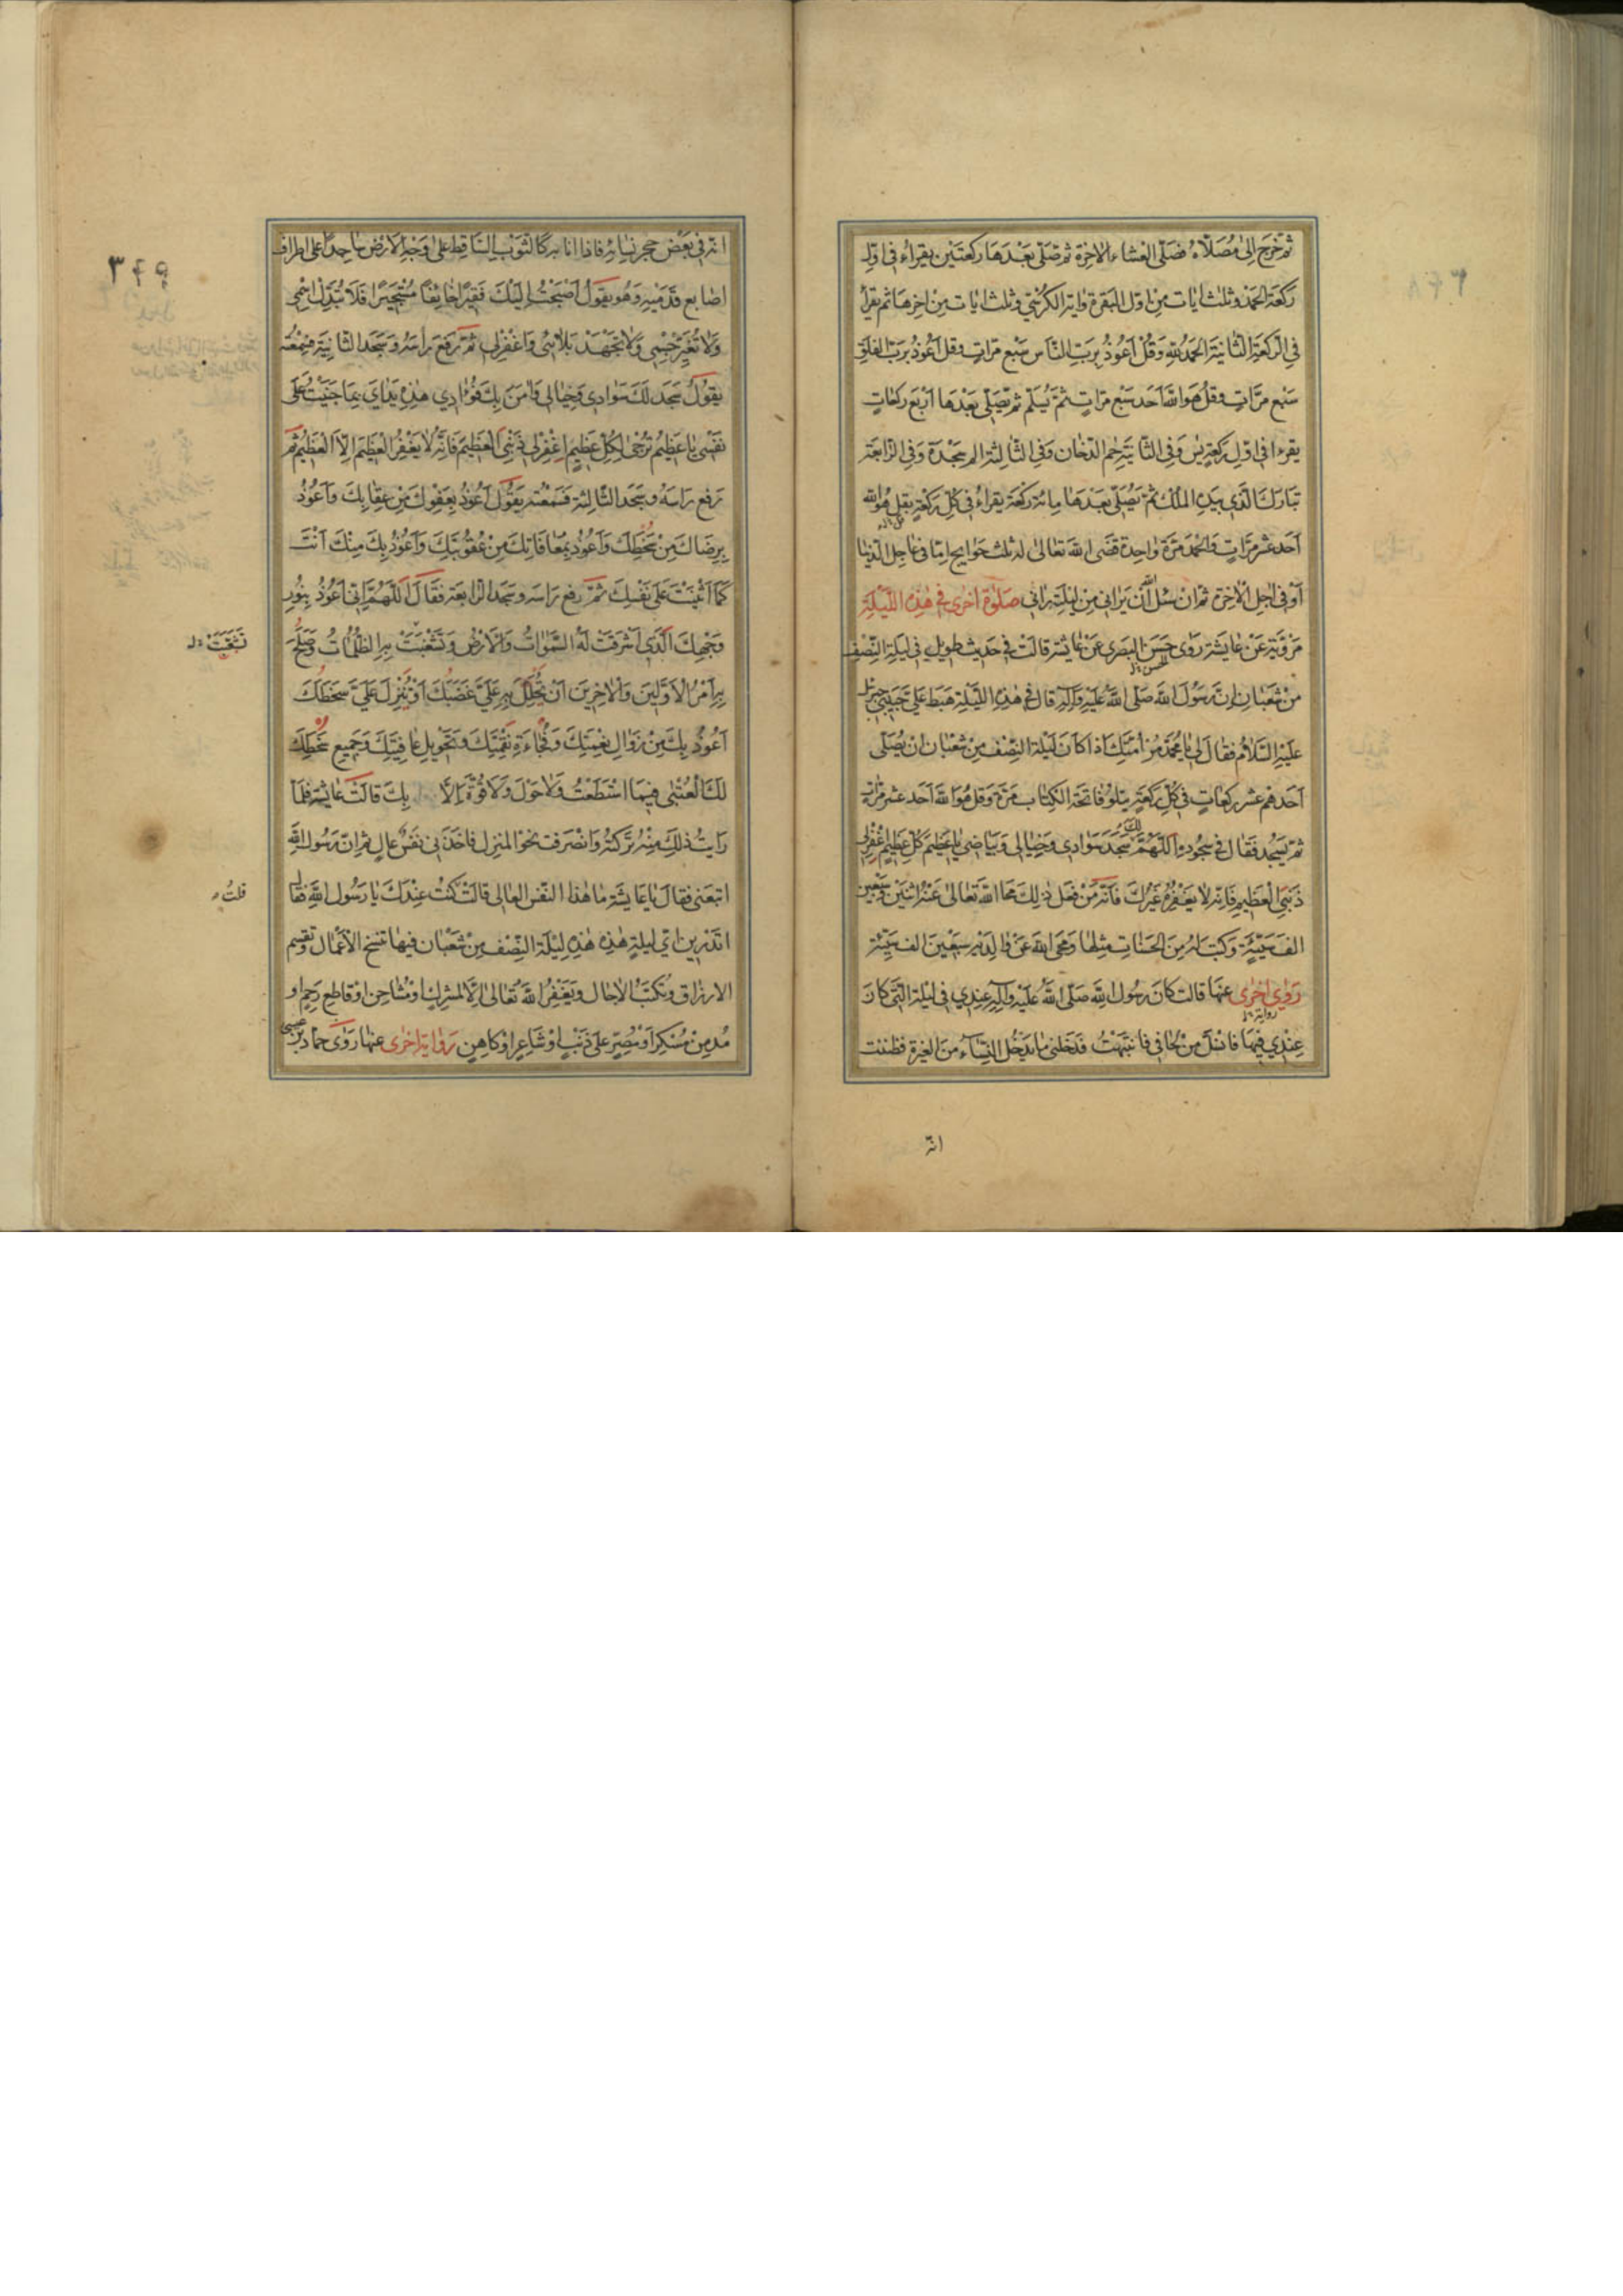 ثم خرج الى مصلاه فصلى العشاء الاخرة ثم صلى بعدها ركعتين يقراء فى اول
ركعة الحمد وثلث ايات من اول البقرة واية الكرسى وثلث ايات من اخرها ثم يقرأ
فى الركعة الثانية الحمد لله وقل اعوذ برب الناس سبع مرات وقل اعوذ برب الفلق
سبع مرات وقل هو الله احد سبع مرات ثم يسلم ثم يصلى بعدها اربع ركعات
يقرءا فى اول ركعة يس وفى الثانية حم الدخان وفى الثالثة الم سجدة وفى الرابعة
تبارك الذى بيده الملك ثم يصلى بعدها مائة ركعة يقراء فى كل ركعة بقل هو الله
احد عشر مرات والحمد مرة واحدة قضى الله تعالى له ثلث حوايج اما فى عاجل الدنيا
او فى اجل الاخرة ثم ان سئل الله ان يرانى من ليلته رانى صلوة اخرى فى هذه الليلة
مروية عن عايشة روى حسن البصرى عن عايشة قالت فى حديث طويل فى ليلة النصف
من شعبان ان رسول الله صلى الله عليه وآله قال فى هذه الليلة هبط على حبيبى جبرئيل
عليه السلام فقال لى يا محمد مر امتك اذا كان ليلة النصف من شعبان ان يصلى
احدهم عشر ركعات فى كل ركعة يتلو فاتحة الكتاب مرة وقل هو الله احد عشر مرات
ثم يسجد فقال فى سجوده اللهم لك سجد سوادى وخيالى وبياضى يا عظيم كل عظيم اغفر لى
ذنبى العظيم فانه لا يغفره غيرك فانه من فعل ذلك محا الله تعالى عنه اثنين وسبعين
الف سيئة وكتب له من الحسنات مثلها ومحى الله عن والديه سبعين الف سيئة
رواى اخرى عنها قالت كان رسول الله صلى الله عليه وآله عندى فى ليلة التى كان
عندى فيها فانسل من لحافى فانتبهت فدخلنى ما يدخل النساء من الغيرة فظننت
انه
٣۴۹
انه فى بعض حجر نسائه فاذا انا به كالثوب الساقط على وجه الارض ساجدا على اطراف
اصابع قدميه وهو يقول اصبحت اليك فقيرا خايفا مستجيرا فلا تبدل اسمى
ولا تغير جسمى ولا تجهد بلائى واغفر لى ثم رفع راسه وسجد الثانية فسمعته
يقول سجد لك سوادى وخيالى وامن بك فؤادى هذه يداى بما جنيت على
نفسى يا عظيم ترجى لكل عظيم اغفر لى ذنبى العظيم فانه لا يغفر العظيم الا العظيم ثم
رفع راسه وسجد الثالثة فسمعته يقول اعوذ بعفوك من عقابك واعوذ
برضاك من سخطك واعوذ بمعافاتك من عقوبتك واعوذ بك منك انت
كما اثنيت على نفسك ثم رفع راسه وسجد الرابعة فقال اللهم انى اعوذ بنور
وجهك الذى اشرقت له السموات والارض وتشعبت به الظلمات وصلح
به امر الاولين والاخرين ان يحلل به على غضبك او ينزل على سخطك
اعوذ بك من زوال نعمتك وفجاءة نقمتك وتحويل عافيتك وجميع سخطك
لك العتبى فيما استطعت ولا حول ولا قوة الا بك قالت عايشة فلما
رايت ذلك منه تركته وانصرفت نحو المنزل فاخذنى نفس عال ثم ان رسول الله
اتبعنى فقال يا عايشة ما هذا النفس العالى قالت كنت عندك يا رسول الله فقال
قلت
اتدرين اى ليلة هذه هذه ليلة النصف من شعبان فيها تنسخ الاعمال وتقسم
الارزاق وتكتب الاجال ويغفر الله تعالى الا لمشرك او مشاحن او قاطع رحم او
مدمن مسكر او مصر على ذنب او شاعر او كاهن رواية اخرى عنها روى حماد بن عيسى